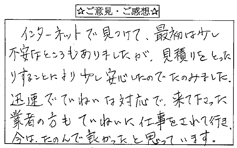 ☆ご意見・ご感想☆
インターネットで見つけて、最初は少し
不安なところもありましたが、見積りをとった
りすることにより少し安心したのでたのみました。
迅速でていねいな対応で、来て下さった
業者の方もていねいに仕事をされて行き、
今は、たのんで良かったと思っています。